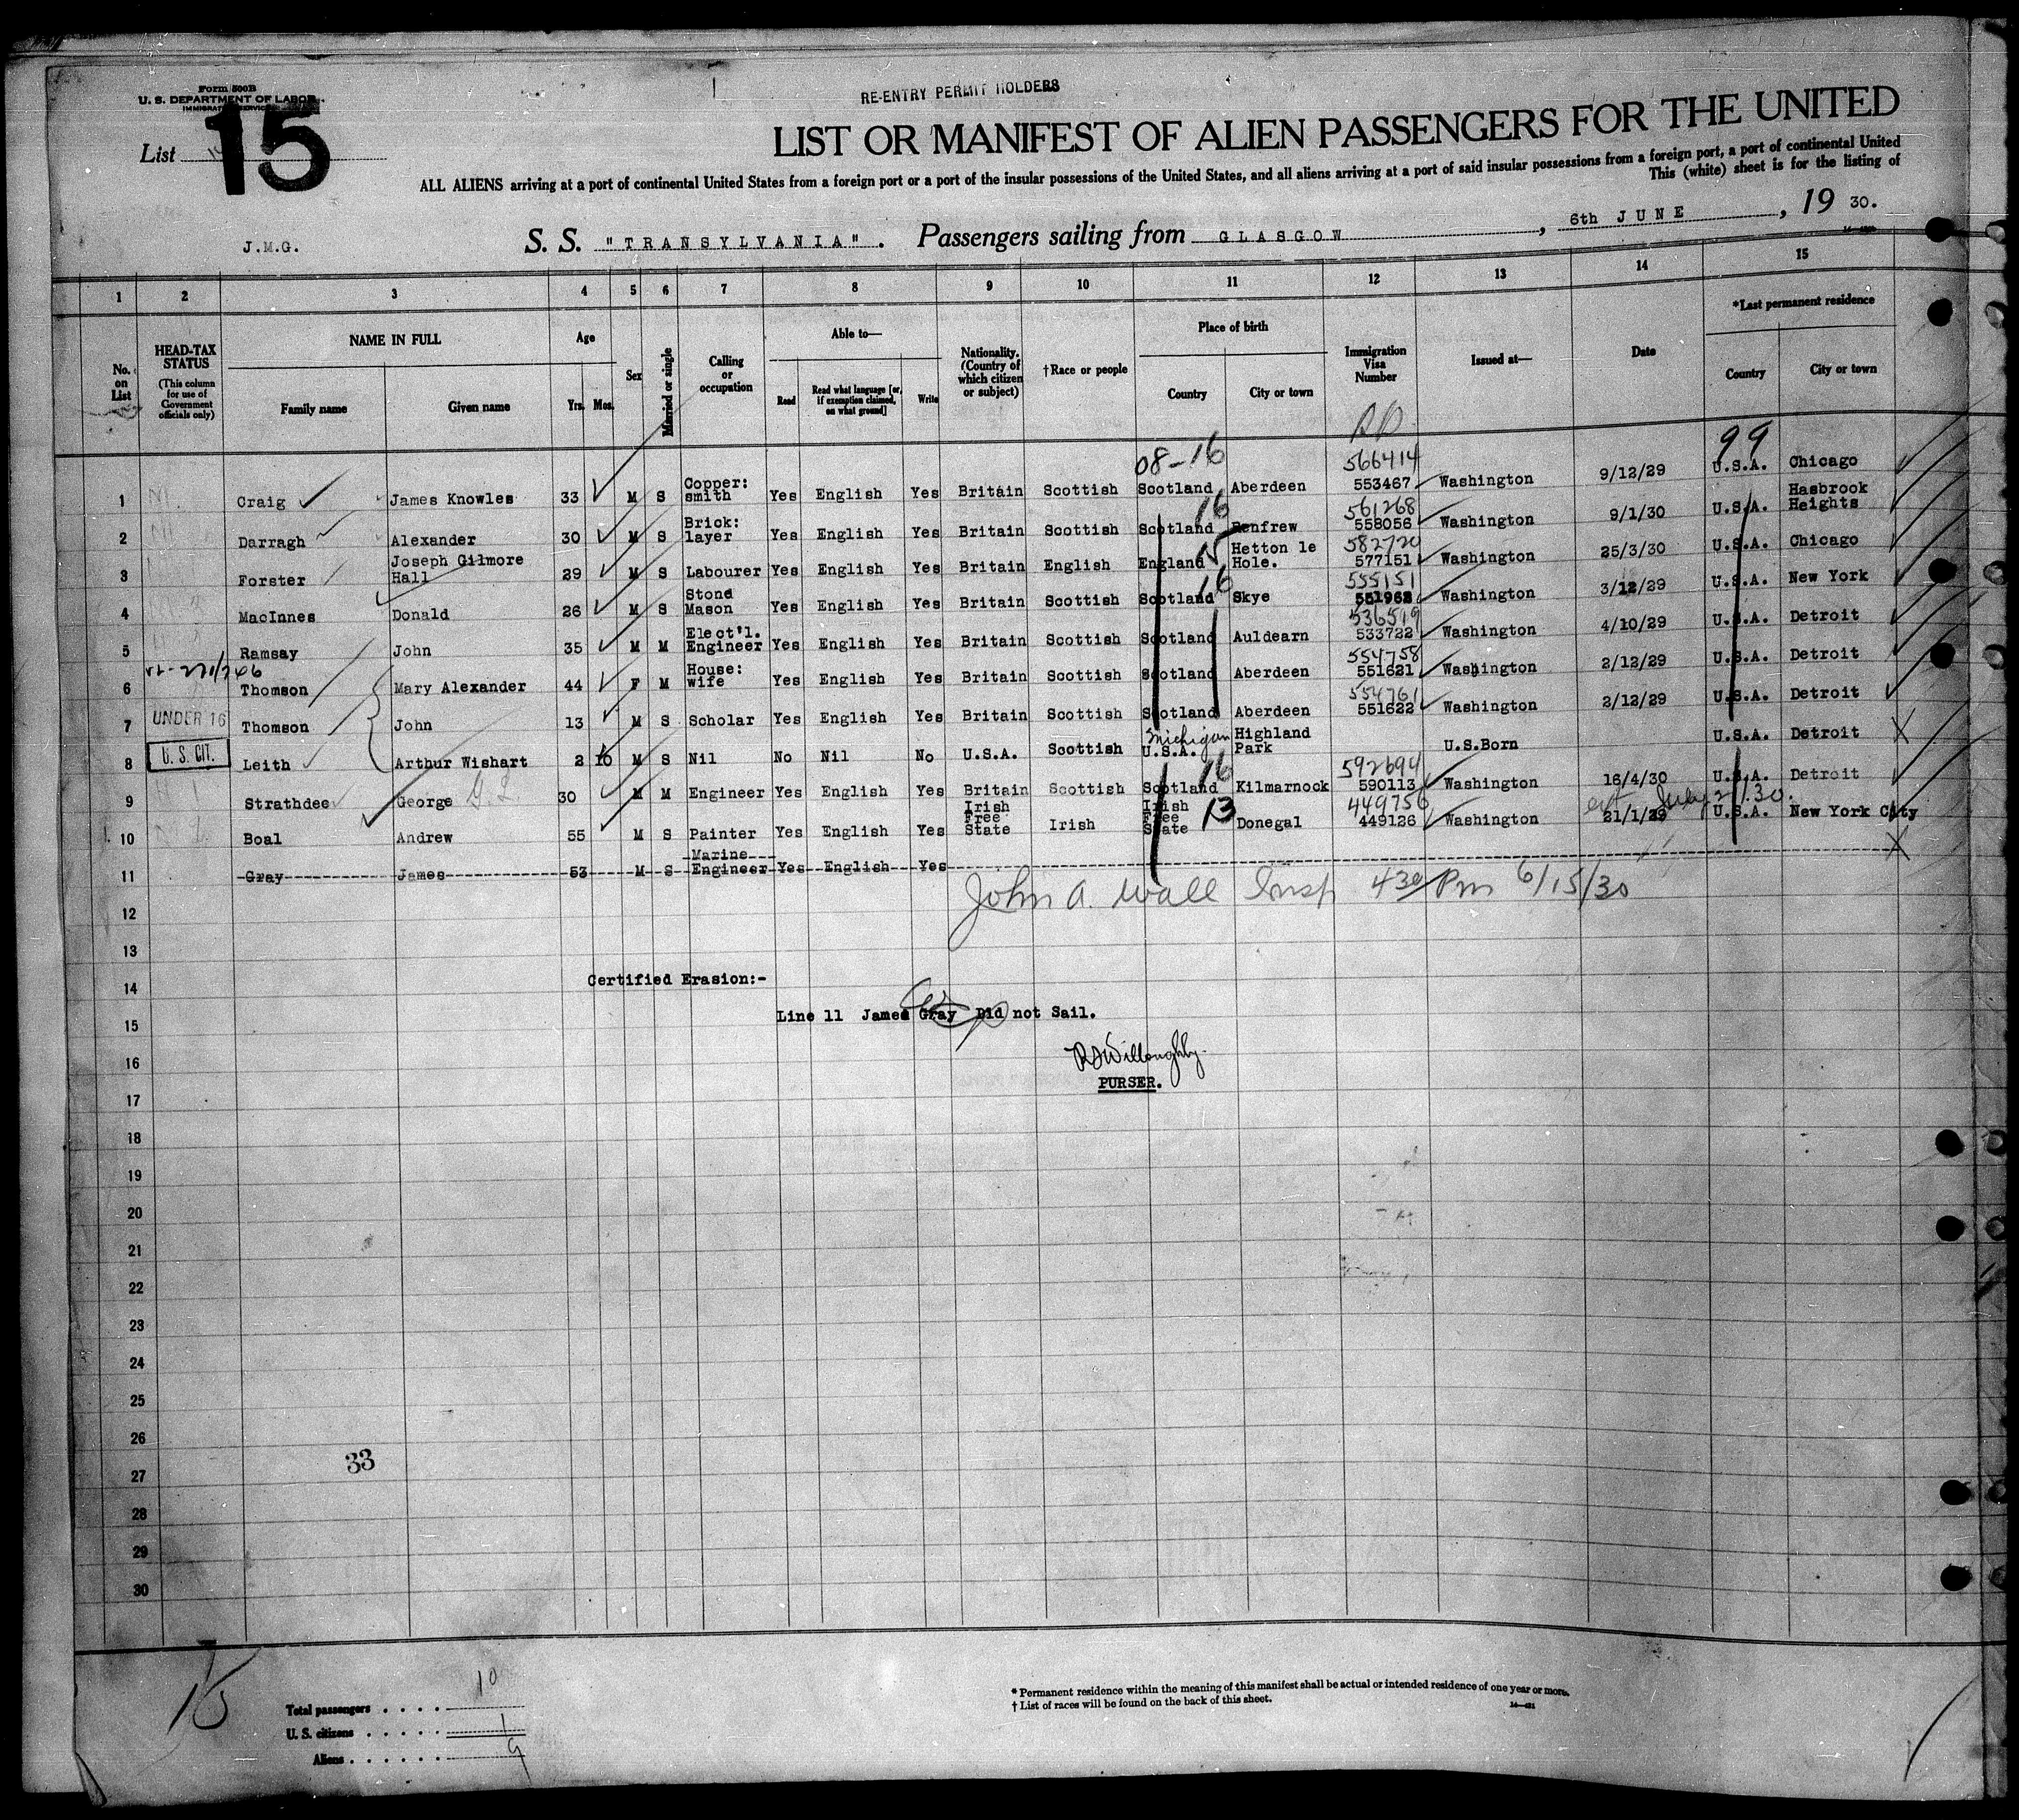 Form 500B
U. S. DEPARTMENT OF LABOR
IMMIGRATION SERVICE
RE-ENTRY PERMIT HOLDERS
List 15
LIST OR MANIFEST OF ALIEN PASSENGERS FOR THE UNITED
ALL ALIENS arriving at a port of continental United States from a foreign port or a port of the insular possessions of the United States, and all aliens arriving at a port of said insular possessions from a foreign port, a port of continental United
This (white) sheet is for the listing of
J.M.G. S. S. "TRANSYLVANIA". Passengers sailing from GLASGOW, 6th JUNE, 19 30.
1 2 3 4 5 6 7 8 9 10 11 12 13 14 15
No. on List
HEAD-TAX STATUS (This column for use of Government officials only)
NAME IN FULL Family name Given name
Age Yrs. Mos.
Sex
Married or single
Calling or occupation
Able to— Read Read what language [or, if exemption claimed, on what ground] Write
Nationality. (Country of which citizen or subject)
†Race or people
Place of birth Country City or town
Immigration Visa Number
Issued at—
Date
*Last permanent residence Country City or town
08-16 99
1 Craig James Knowles 33 M S Copper: smith Yes English Yes Britain Scottish Scotland Aberdeen 566414 553467 Washington 9/12/29 U.S.A. Chicago
2 Darragh Alexander 30 M S Brick: layer Yes English Yes Britain Scottish Scotland 16 Renfrew 561268 558056 Washington 9/1/30 U.S.A. Hasbrook Heights
3 Forster Joseph Gilmore Hall 29 M S Labourer Yes English Yes Britain English England 15 Hetton le Hole. 582720 577151 Washington 25/3/30 U.S.A. Chicago
4 MacInnes Donald 26 M S Stone Mason Yes English Yes Britain Scottish Scotland 16 Skye 555151 551962 Washington 3/12/29 U.S.A. New York
5 Ramsay John 35 M M Elect'l. Engineer Yes English Yes Britain Scottish Scotland Auldearn 536519 533722 Washington 4/10/29 U.S.A. Detroit
6 Thomson Mary Alexander 44 F M House: wife Yes English Yes Britain Scottish Scotland Aberdeen 554758 551621 Washington 2/12/29 U.S.A. Detroit
7 UNDER 16 Thomson John 13 M S Scholar Yes English Yes Britain Scottish Scotland Aberdeen 554761 551622 Washington 2/12/29 U.S.A. Detroit
8 U. S. CIT. Leith Arthur Wishart 2 10 M S Nil No Nil No U.S.A. Scottish Michigan U.S.A. Highland Park U.S.Born U.S.A. Detroit X
9 Strathdee George 30 M M Engineer Yes English Yes Britain Scottish Scotland 16 Kilmarnock 592694 590113 Washington 16/4/30 U.S.A. Detroit
10 Boal Andrew 55 M S Painter Yes English Yes Irish Free State Irish Irish Free State 13 Donegal 449756 449126 Washington 21/1/29 ext July 21/30. U.S.A. New York City
11 Gray James 53 M S Marine Engineer Yes English Yes X
John A. Wall Insp 430 Pm 6/15/30
12
13
14 Certified Erasion:-
15 Line 11 James Gray Did not Sail.
16 RSWilloughby
PURSER.
17
18
19
20
21
22
23
24
25
26
33
27
28
29
30
15
Total passengers . . . . 10
U. S. citizens . . . . . 1
Aliens . . . . . . 9
* Permanent residence within the meaning of this manifest shall be actual or intended residence of one year or more.
† List of races will be found on the back of this sheet.